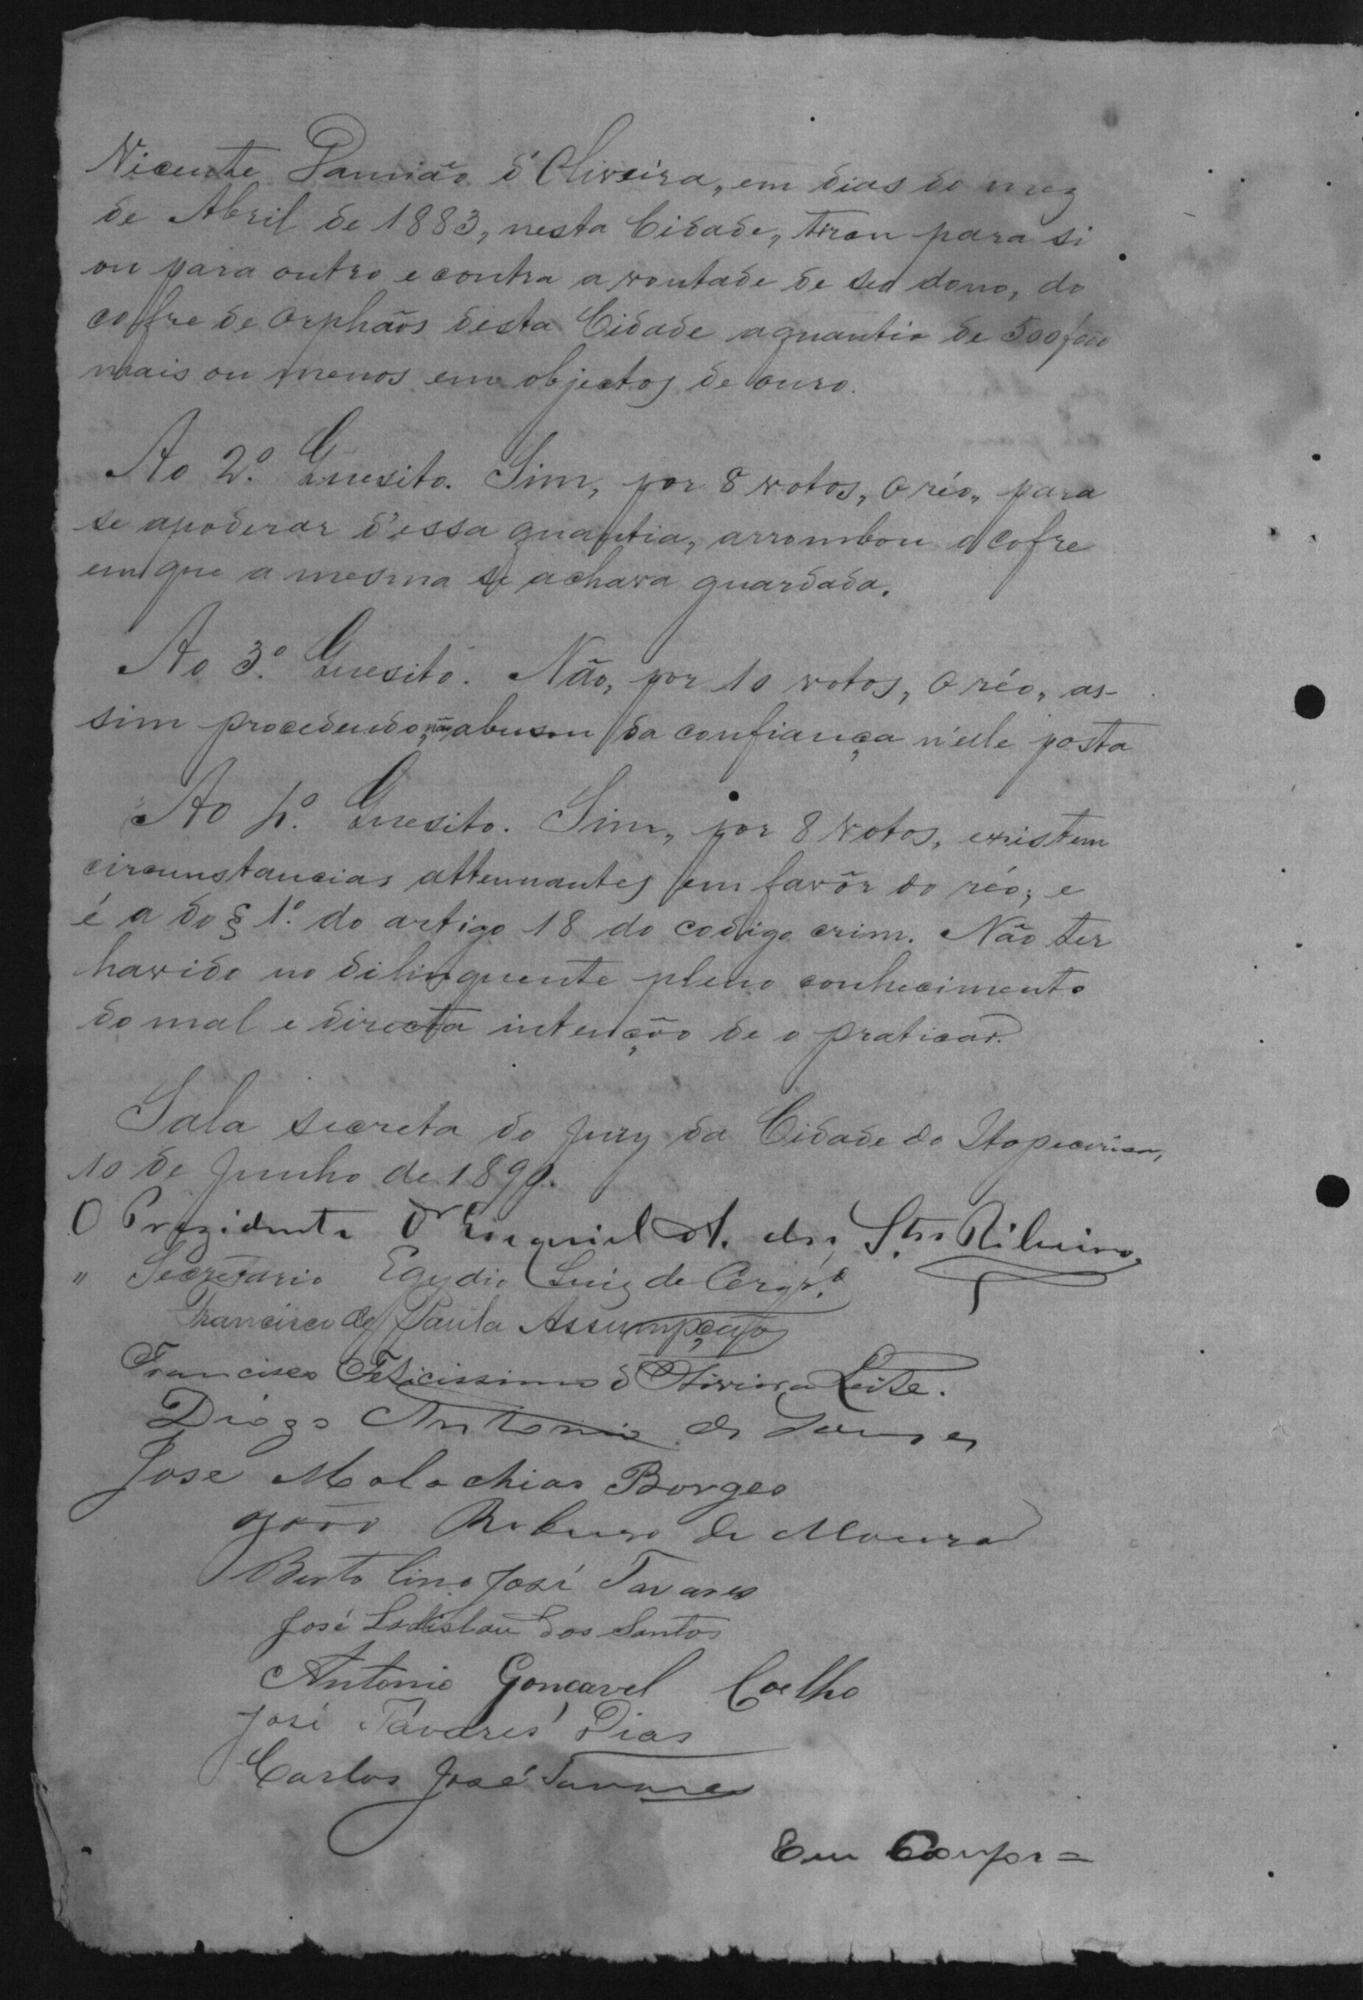 Vicente Damião d'Oliveira, em dias do mez
de Abril de 1883, nesta Cidade, tirou para si
ou para outro e contra a vontade de seo dono, do
cofre de orphãos desta Cidade a quantia de 500$000
mais ou menos em objectos de ouro.
Ao 2.º Quesito. Sim, por 8 votos, o réo, para
se apoderar d'essa quantia, arrombou o cofre
em que a mesma se achava guardada.
Ao 3.º Quesito. Não, por 10 votos, o réo, as-
sim procedendo, não abusou da confiança n'elle posta
Ao 4.º Quesito. Sim, por 8 votos, existem
circunstancias attenuantes em favôr do réo; e
é a do § 1.º do artigo 18 do codigo crim. Não ter
havido no dilinquente pleno conhecimento
do mal e directa intenção de o praticar.
Sala secreta do jury da Cidade do Itapecerica,
10 de Junho de
O Prezidente Dr Ezequiel A. dos Stos Ribeiro.
" Secretario Egydio Luiz de Cerqr.ª
Francisco de Paula Assumpção
Francisco Felicissimo d'Oliveira Leite.
Diogo Antonio de Souza
José Malachias Borges
João Ribeiro de Moura
Bertolino José Tavares
José Ladislau dos Santos
Antonio Goncavel Coelho
José Tavares Dias
Carlos José Tavares
Em